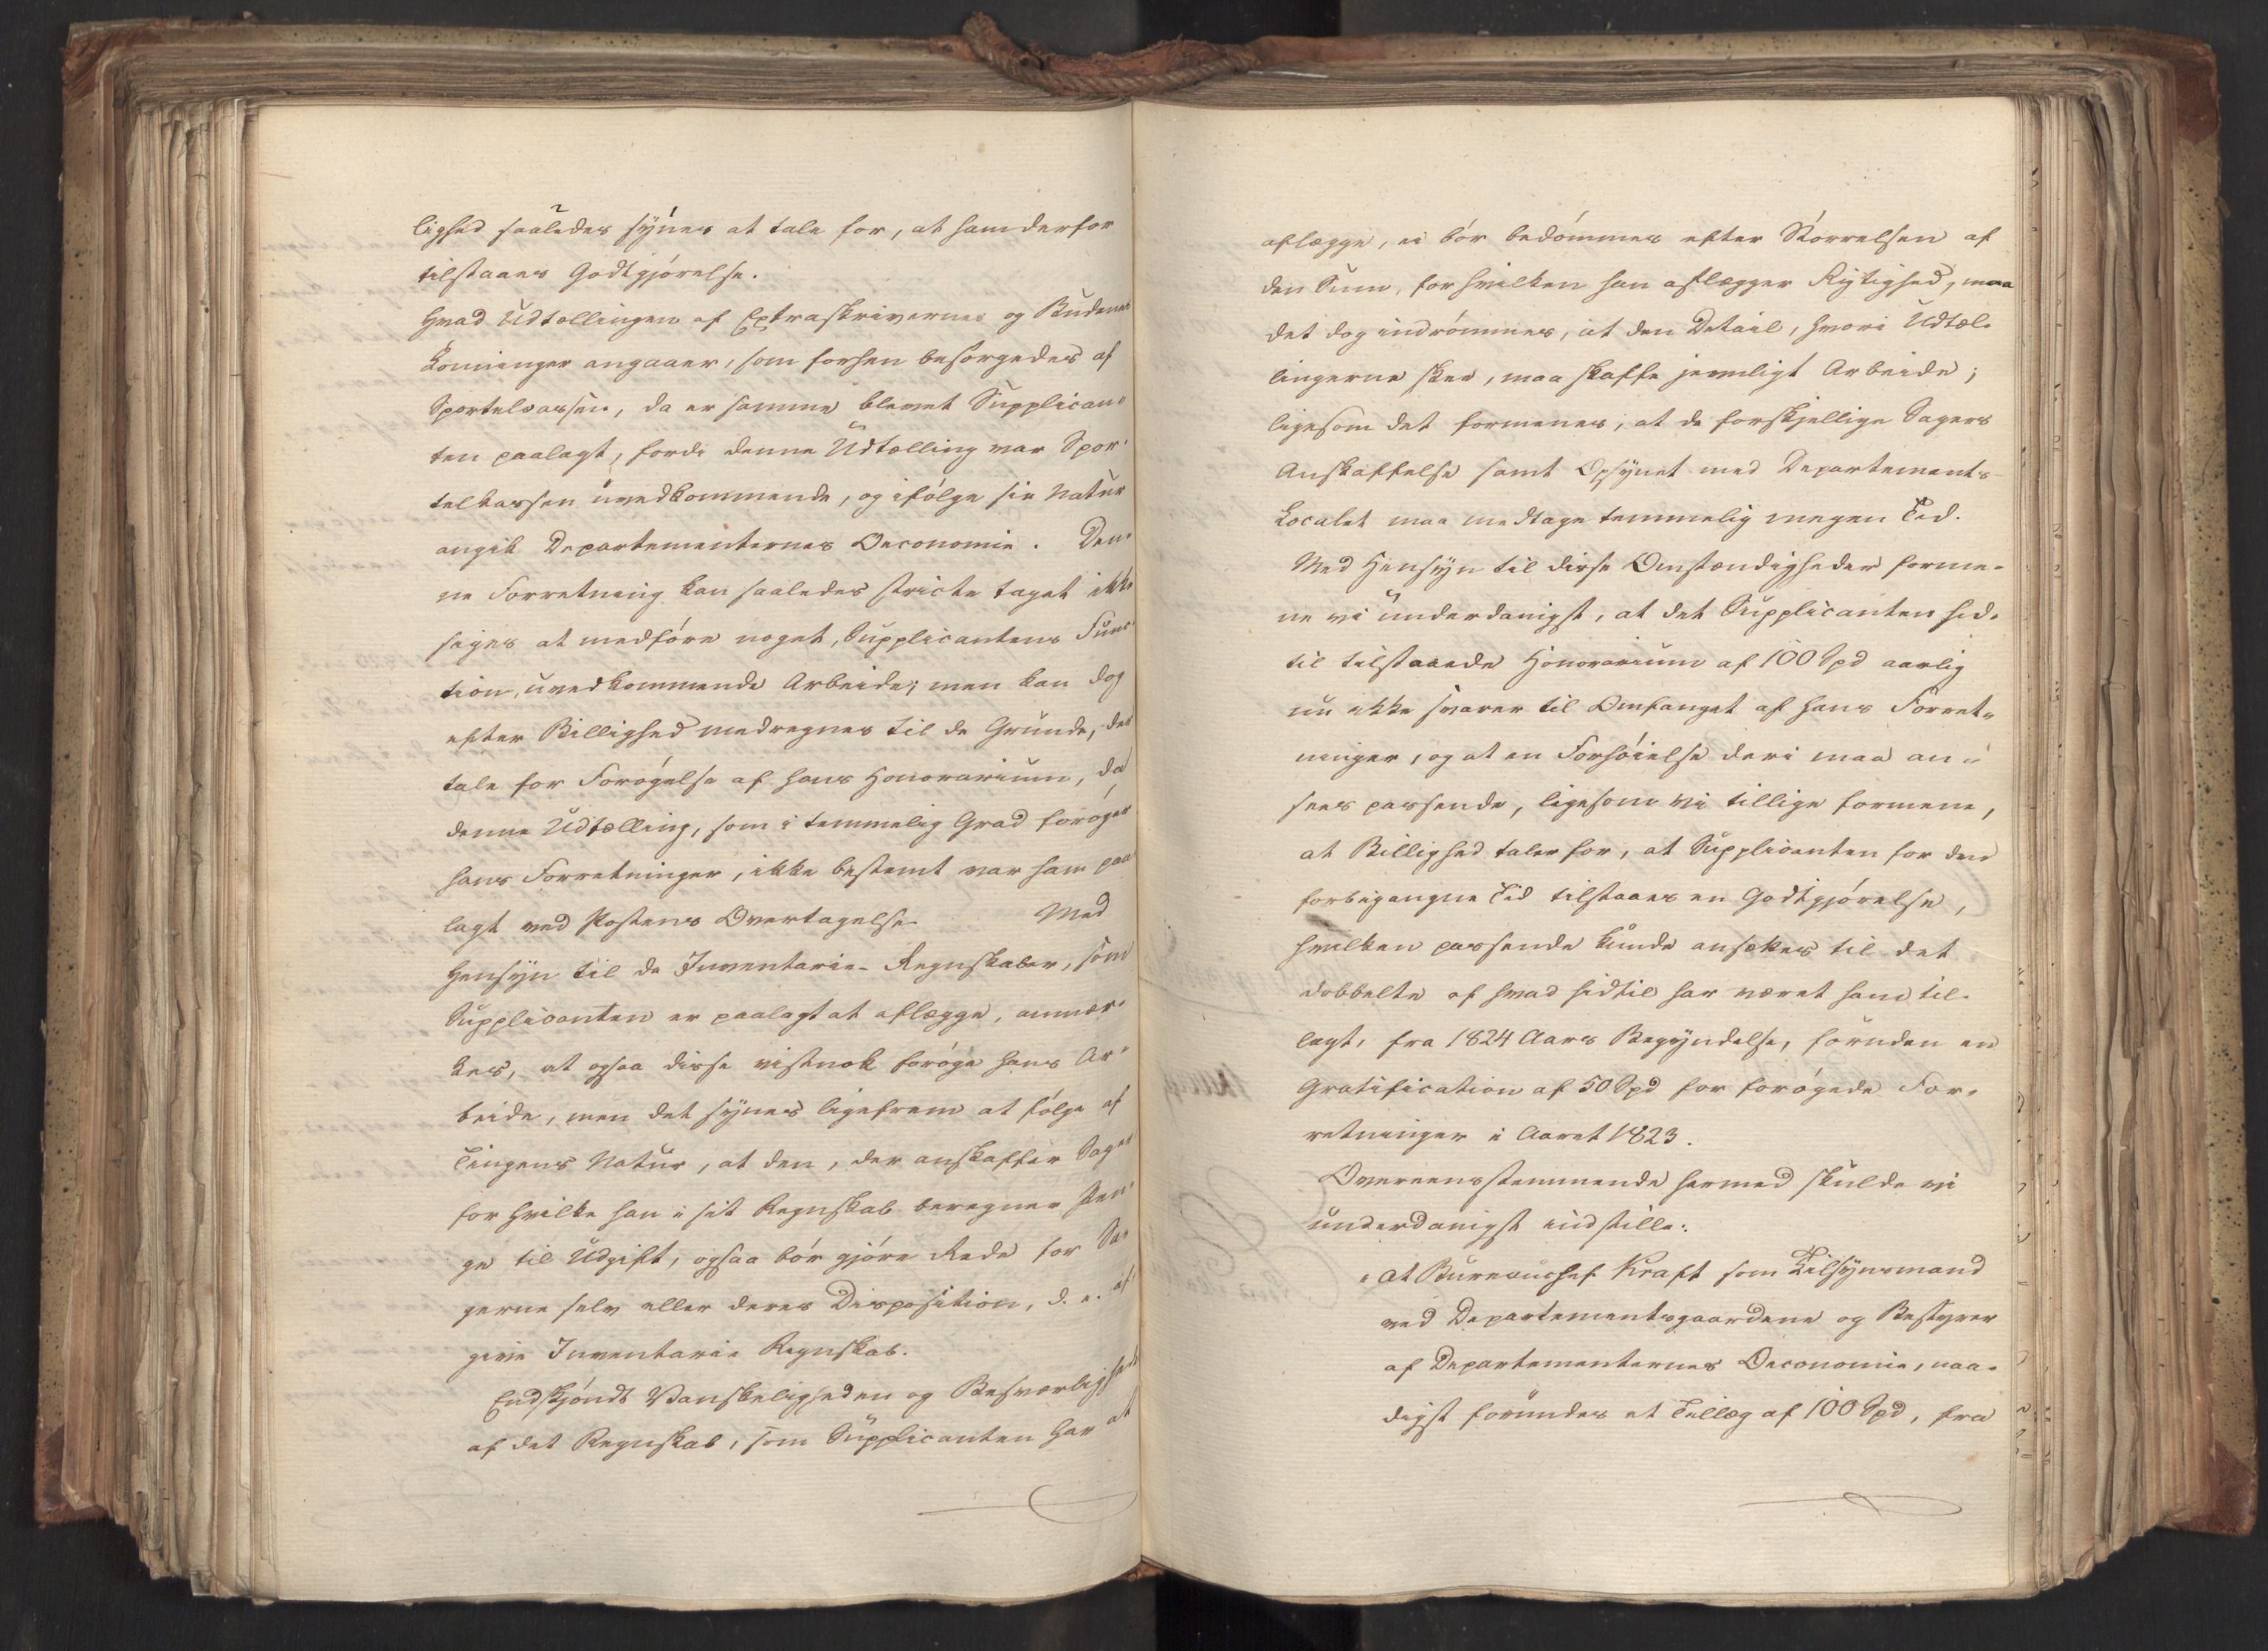 lighed saaledes synes at tale for, at ham derfor
tilstaaes Godtgjörelse.
Hvad Udtællingen af Extraskrivernes og Budenes
Lønninger angaaer, som forhen besørgedes af
Sportelcassen, da er samme blevet Supplican-
ten paalagt, fordi denne Udtælling var Spor-
telkassen uvedkommende, og ifölge sin Natur
angik Departementernes Oeconomie. Den-
ne Forretning kan saaledes stricte taget ikke
siges at medföre noget, Supplicantens Func-
tion, uvedkommende Arbeide; men kan dog
efter Billighed medregnes til de Grunde, der
tale for Forögelse af hans Honorarium, da
denne Udtælling, som i temmelig Grad foröger
hans Forretninger, ikke bestemt var ham paa-
lagt ved Postens Overtagelse. Med
Hensyn til de Inventarie-Regnskaber, som
Supplicanten er paalagt at aflægge, anmær-
kes, at ogsaa disse vistnok foröge hans Ar-
beide, men det synes ligefrem at fölge af
Tingens Natur, at den, der anskaffer Sager
for hvilke han i sit Regnskab beregner Pen-
ge til Udgift, ogsaa bör gjöre Rede for Sa-
gerne selv eller deres Disposition, d. e. af-
give Inventarie Regnskab.
Endskjöndt Vanskeligheden og Besværligheden
af det Regnskab, som Supplicanten har at
aflægge, ei bör bedömmes efter Störrelsen af
den Sum, for hvilken han aflægger Rigtighed, maa
det dog indrömmes, at den Detail, hvori Udtæl-
lingerne skee, maa skaffe jevnligt Arbeide;
ligesom det formenes, at de forskjellige Sagers
Anskaffelse samt Opsynet med Departements-
Localet maa medtage temmelig megen Tid.
Med Hensyn til disse Omstændigheder forme-
ne vi underdanigst, at det Supplicanten hid-
til tilstaaede Honorarium af 100 Spd aarlig
nu ikke svarer til Omfanget af hans Forret-
ninger, og at en Forhöielse deri maa an-
sees passende, ligesom vi tillige formene,
at Billighed taler for, at Supplicanten for den
forbigangne Tid tilstaaes en Godtgjörelse,
hvilken passende kunde ansættes til det
dobbelte af hvad hidtil har været ham til-
lagt, fra 1824 Aars Begyndelse, foruden en
Gratification af 50 Spd for forögede For-
retninger i Aaret 1823.
Overeensstemmende hermed skulde vi
underdanigst indstille:
"At Bureauchef Kraft som Tilsynsmand
ved Departementsgaardene og Bestyrer
af Departementernes Oeconomie, naa-
digst forundes et Tillæg af 100 Spd, fra